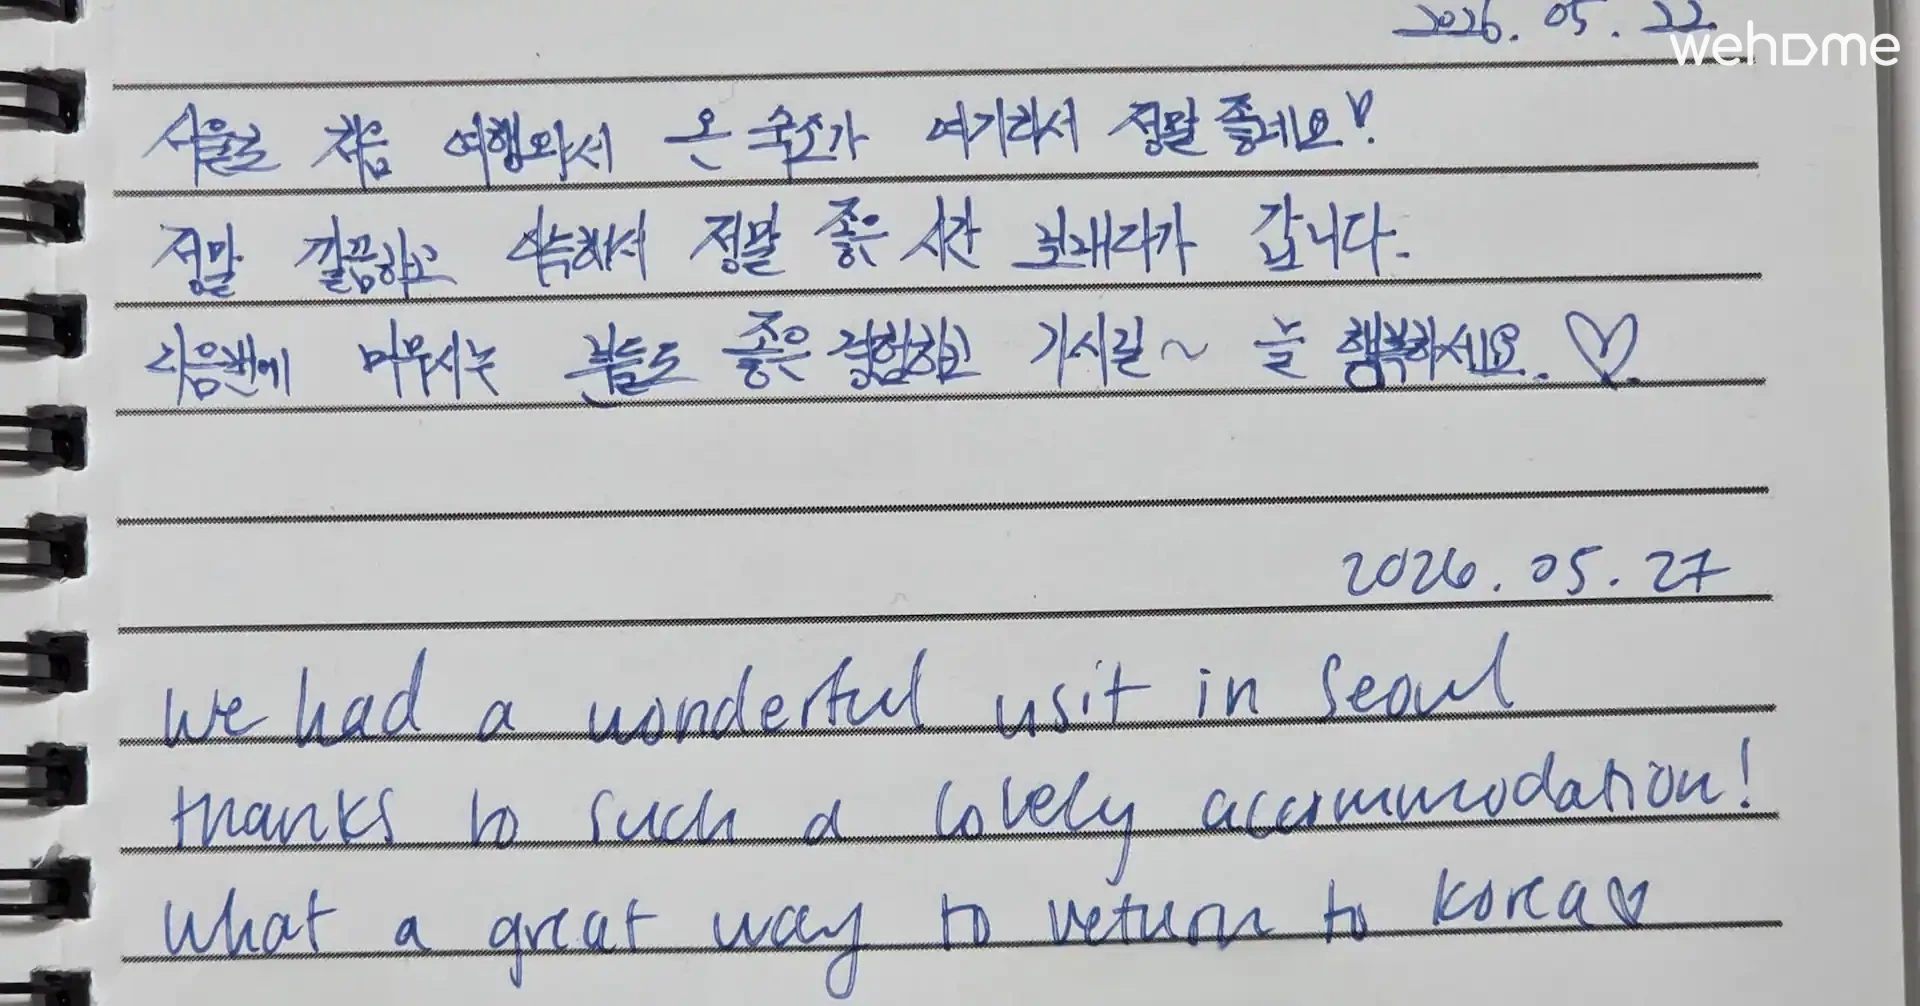 2026. 05. 22
wehome
서울로 처음 여행와서 온 숙소가 여기라서 정말 좋네요♡!
정말 깔끔하고 아늑해서 정말 좋은 시간 보내다가 갑니다.
다음번에 머무시는 분들도 좋은 경험하고 가시길~ 늘 행복하세요. ♡
2026. 05. 27
We had a wonderful visit in Seoul
thanks to such a lovely accommodation!
What a great way to return to Korea♡